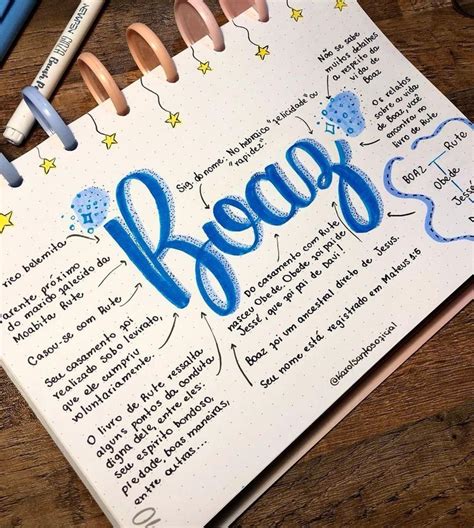 Boaz
Sig. do nome: No hebraico "felicidade" ou
"rapidez"
Não se sabe
muitos detalhes
a respeito da
vida de
Boaz
Os relatos
sobre a vida
de Boaz, você
encontra no
livro de Rute
BOAZ Rute
Obede
Jessé
rico belemita
Parente próximo
do marido falecido da
Moabita Rute
Casou-se com Rute
Seu casamento foi
realizado sobo levirato,
que ele cumpriu
voluntariamente.
O livro de Rute ressalta
alguns pontos da conduta
digna dele, entre eles:
seu espírito bondoso,
piedade, boas maneiras,
entre outras...
do casamento com Rute
nasceu Obede. Obede foi pai de
Jessé, que foi pai de Davi!
Boaz foi um ancestral direto de Jesus.
Seu nome está registrado em Mateus 1:5
@KarolSantosoficial